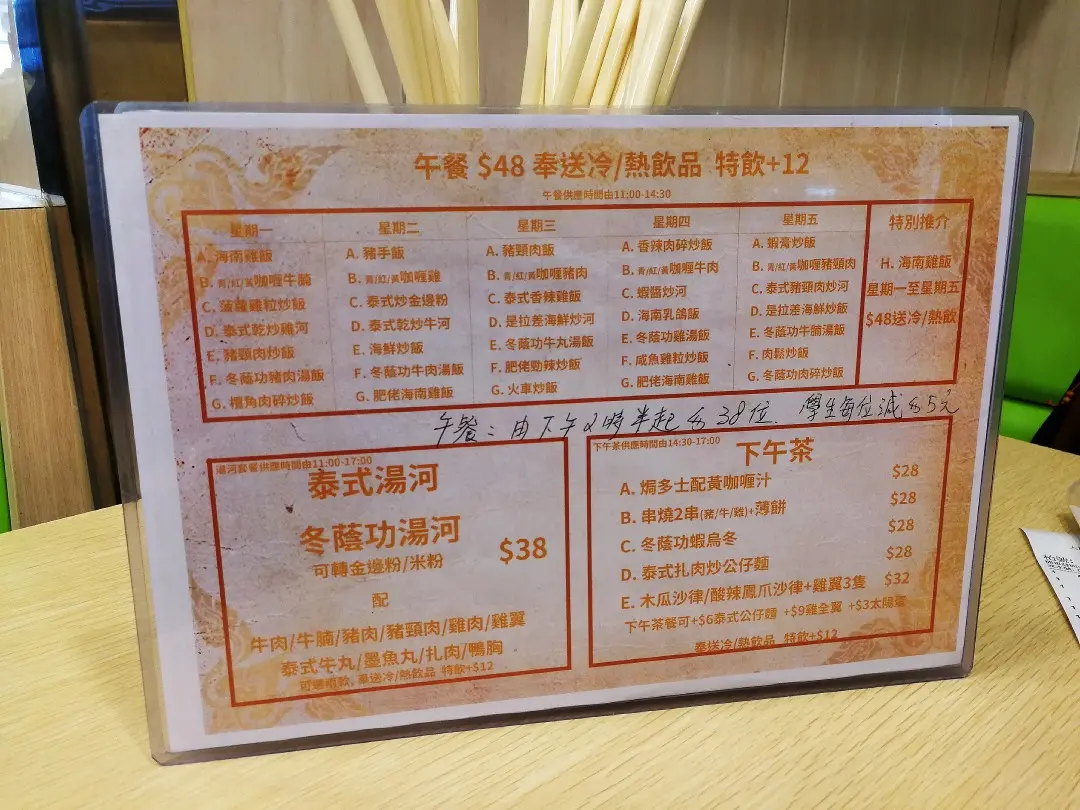 午餐 $48 奉送冷/熱飲品 特飲+12
午餐供應時間由11:00-14:30
星期一
A. 海南雞飯
B. 青/紅/黃咖喱牛腩
C. 菠蘿雞粒炒飯
D. 泰式乾炒雞河
E. 豬頸肉炒飯
F. 冬蔭功豬肉湯飯
G. 欖角肉碎炒飯
星期二
A. 豬手飯
B. 青/紅/黃咖喱雞
C. 泰式炒金邊粉
D. 泰式乾炒牛河
E. 海鮮炒飯
F. 冬蔭功牛肉湯飯
G. 肥佬海南雞飯
星期三
A. 豬頸肉飯
B. 青/紅/黃咖喱豬肉
C. 泰式香辣雞飯
D. 是拉差海鮮炒河
E. 冬蔭功牛丸湯飯
F. 肥佬勁辣炒飯
G. 火車炒飯
星期四
A. 香辣肉碎炒飯
B. 青/紅/黃咖喱牛肉
C. 蝦醬炒河
D. 海南乳鴿飯
E. 冬蔭功雞湯飯
F. 咸魚雞粒炒飯
G. 肥佬海南雞飯
星期五
A. 蝦膏炒飯
B. 青/紅/黃咖喱豬頸肉
C. 泰式豬頸肉炒河
D. 是拉差海鮮炒飯
E. 冬蔭功牛腩湯飯
F. 肉鬆炒飯
G. 冬蔭功肉碎炒飯
特別推介
H. 海南雞飯
星期一至星期五
$48送冷/熱飲
午餐：由下午2時半起 $38位. 學生每位減$5元
湯河套餐供應時間由11:00-17:00
泰式湯河
冬蔭功湯河
$38
可轉金邊粉/米粉
配
牛肉/牛腩/豬肉/豬頸肉/雞肉/雞翼
泰式牛丸/墨魚丸/扎肉/鴨胸
奉送冷/熱飲品 特飲+$12
下午茶供應時間由14:30-17:00
下午茶
A. 焗多士配黃咖喱汁 $28
B. 串燒2串(豬/牛/雞)+薄餅 $28
C. 冬蔭功蝦烏冬 $28
D. 泰式扎肉炒公仔麵 $28
E. 木瓜沙律/酸辣鳳爪沙律+雞翼3隻 $32
下午茶餐可+$6泰式公仔麵 +$9雞全翼 +$3太陽蛋
奉送冷/熱飲品 特飲+$12